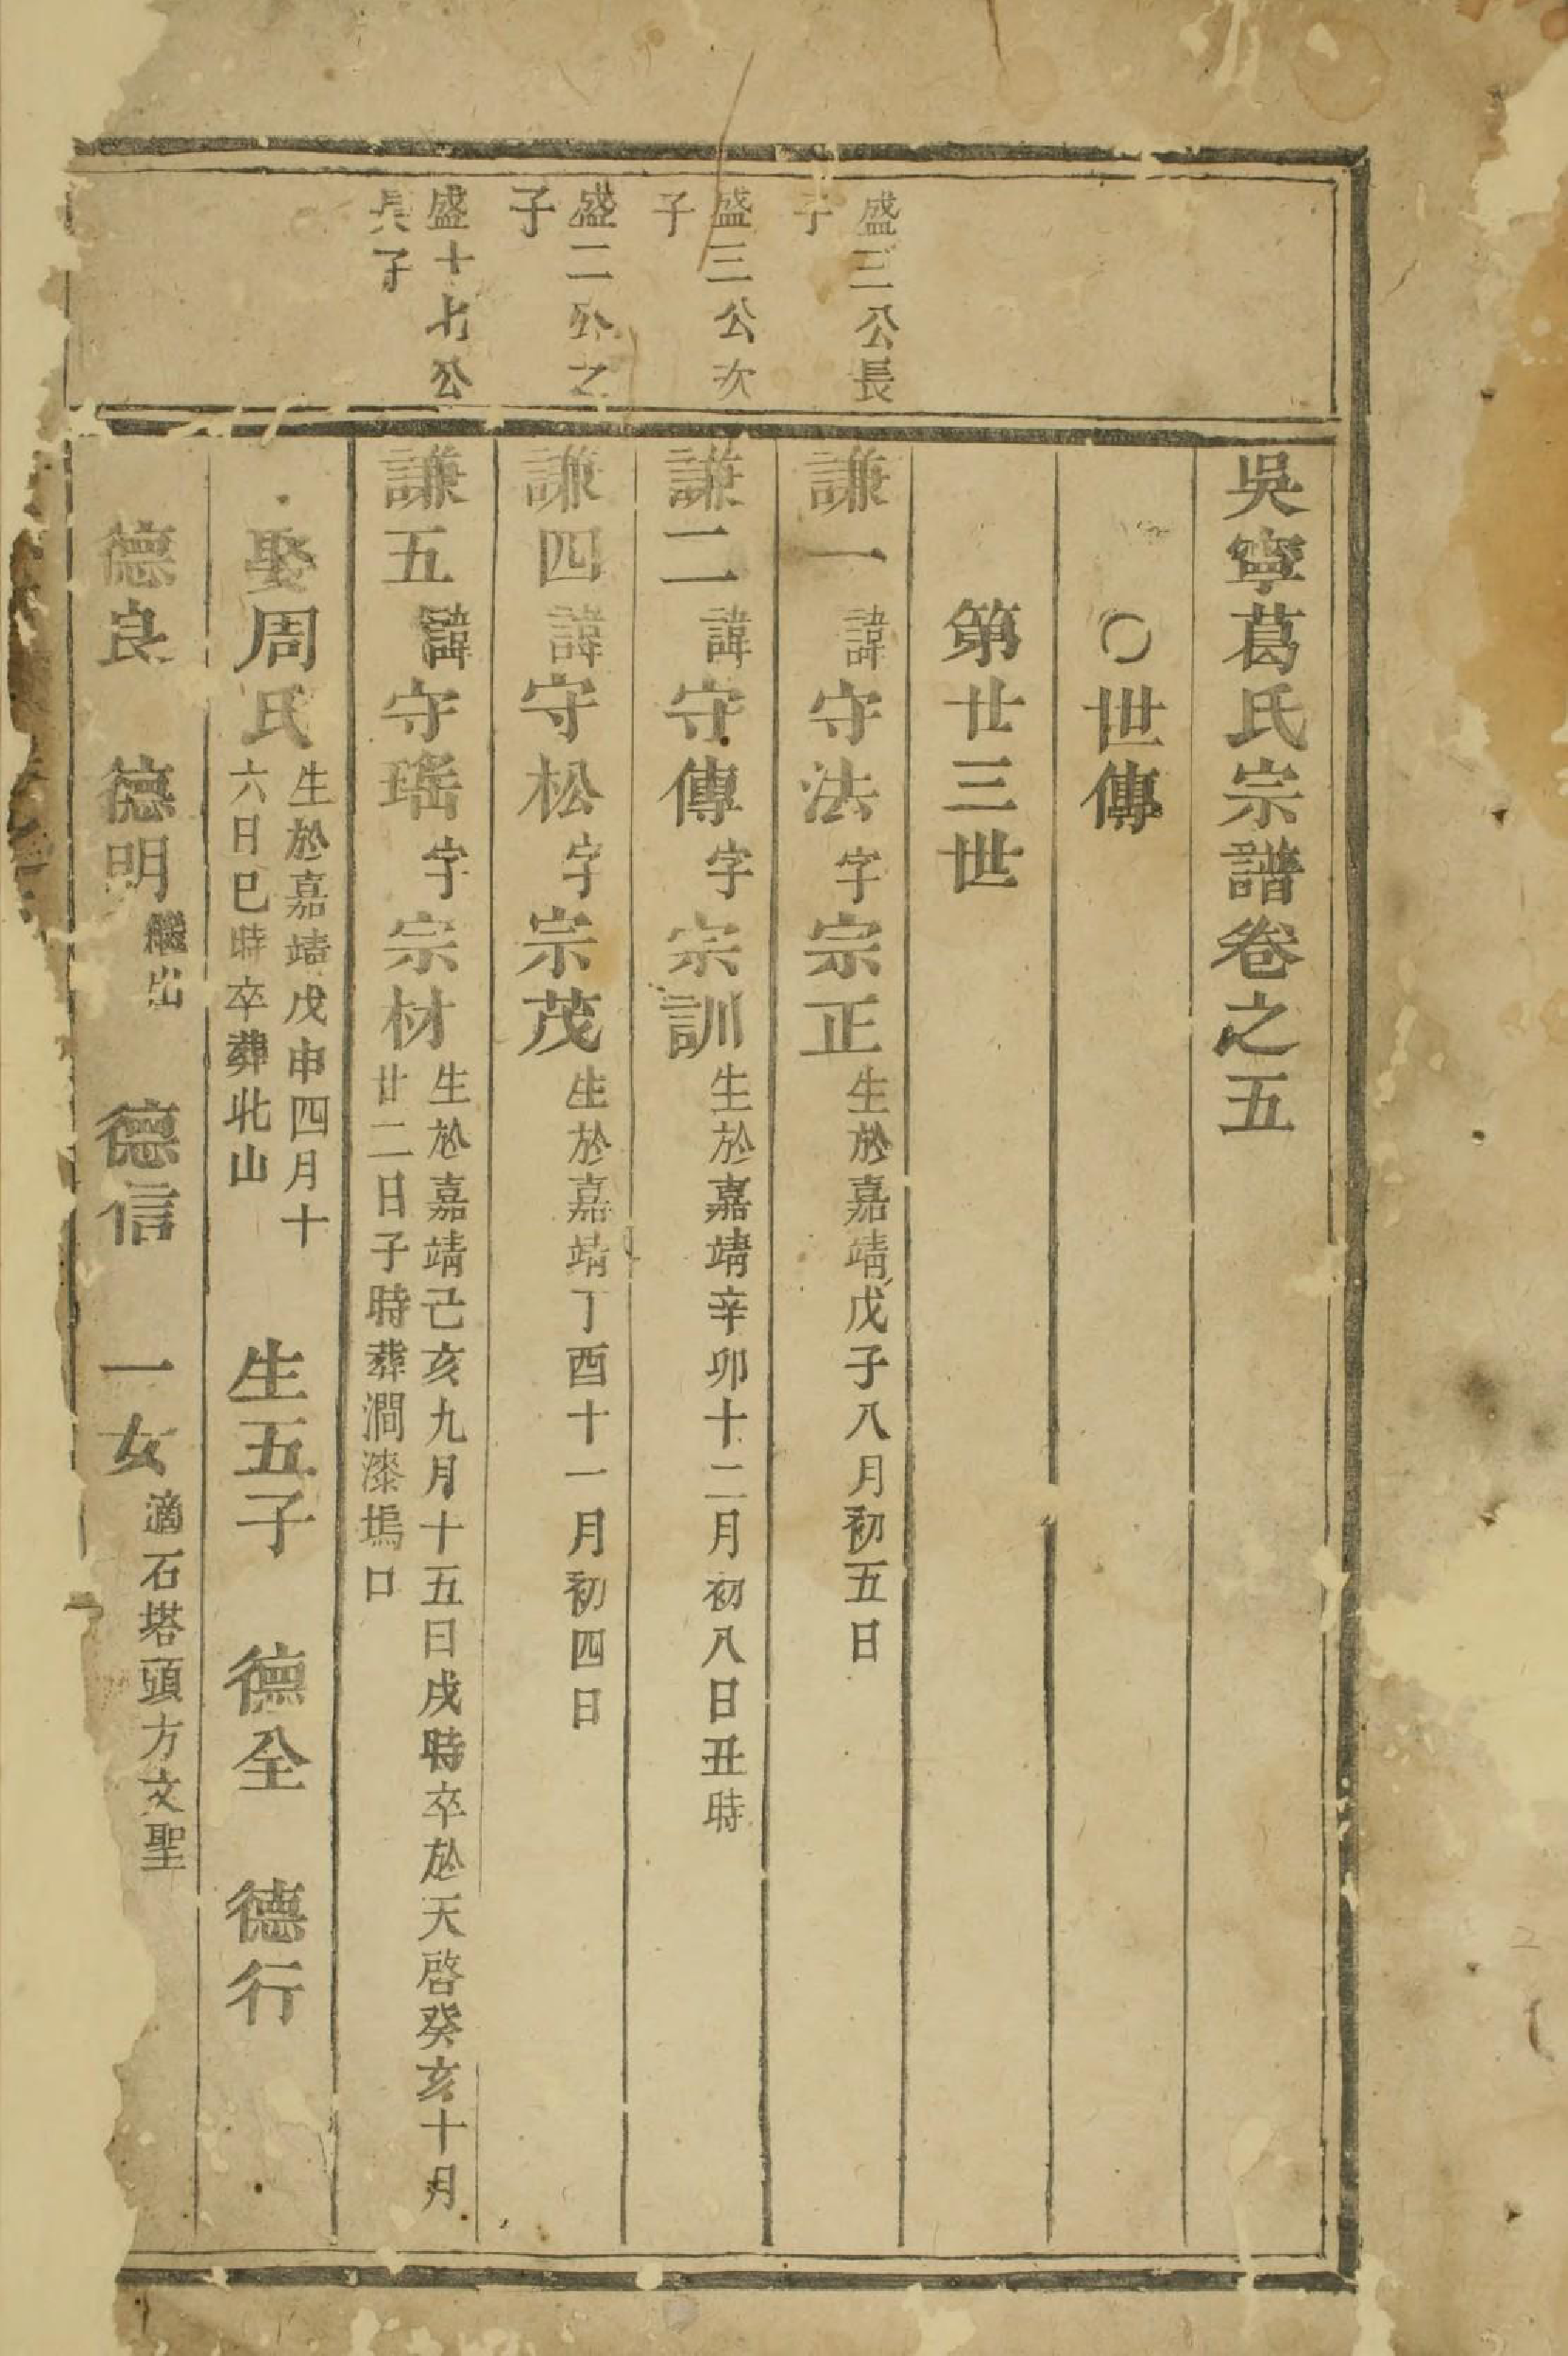 吳寧葛氏宗譜卷之五
○世傳
第廿三世
盛三公長
子
謙一諱守法字宗正生於嘉靖戊子八月初五日
盛三公次
子
謙二諱守傳字宗訓生於嘉靖辛卯十二月初八日丑時
盛二公之
子
謙四諱守松字宗茂生於嘉靖丁酉十一月初四日
盛十七公
長子
謙五諱守瑤字宗材生於嘉靖己亥九月十五日戌時卒於天啓癸亥十月
廿二日子時葬澗漆塢口
娶周氏生於嘉靖戊申四月十
六日巳時卒葬北山
生五子 德全 德行
德良 德明繼出 德信 一女適石塔頭方文聖